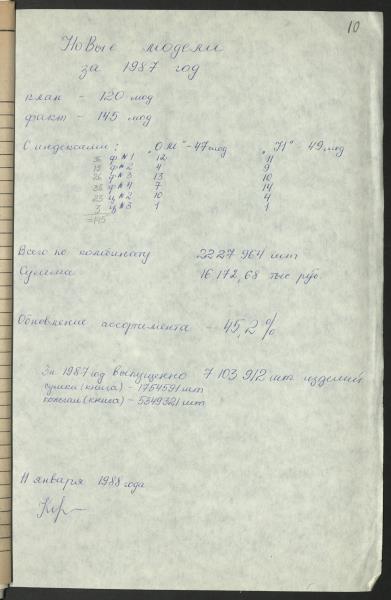 10
Новые модели
за 1987 год
план - 120 мод
факт - 145 мод
С индексами: "ОМ" - 47 мод "Н" - 49 мод
36 ф №1 12 11
15 ф №2 4 9
26 ф №3 13 10
38 ф №4 7 14
23 ц №2 10 4
3 ц №3 1 1
=145
Всего по комбинату 2227964 шт
Сумма 16172,68 тыс руб.
Обновление ассортимента - 45,2%
За 1987 год выпущенно 7103912 шт изделий
сумки (книга) - 1754591 шт
кожгал (книга) - 5349321 шт
11 января 1988 года